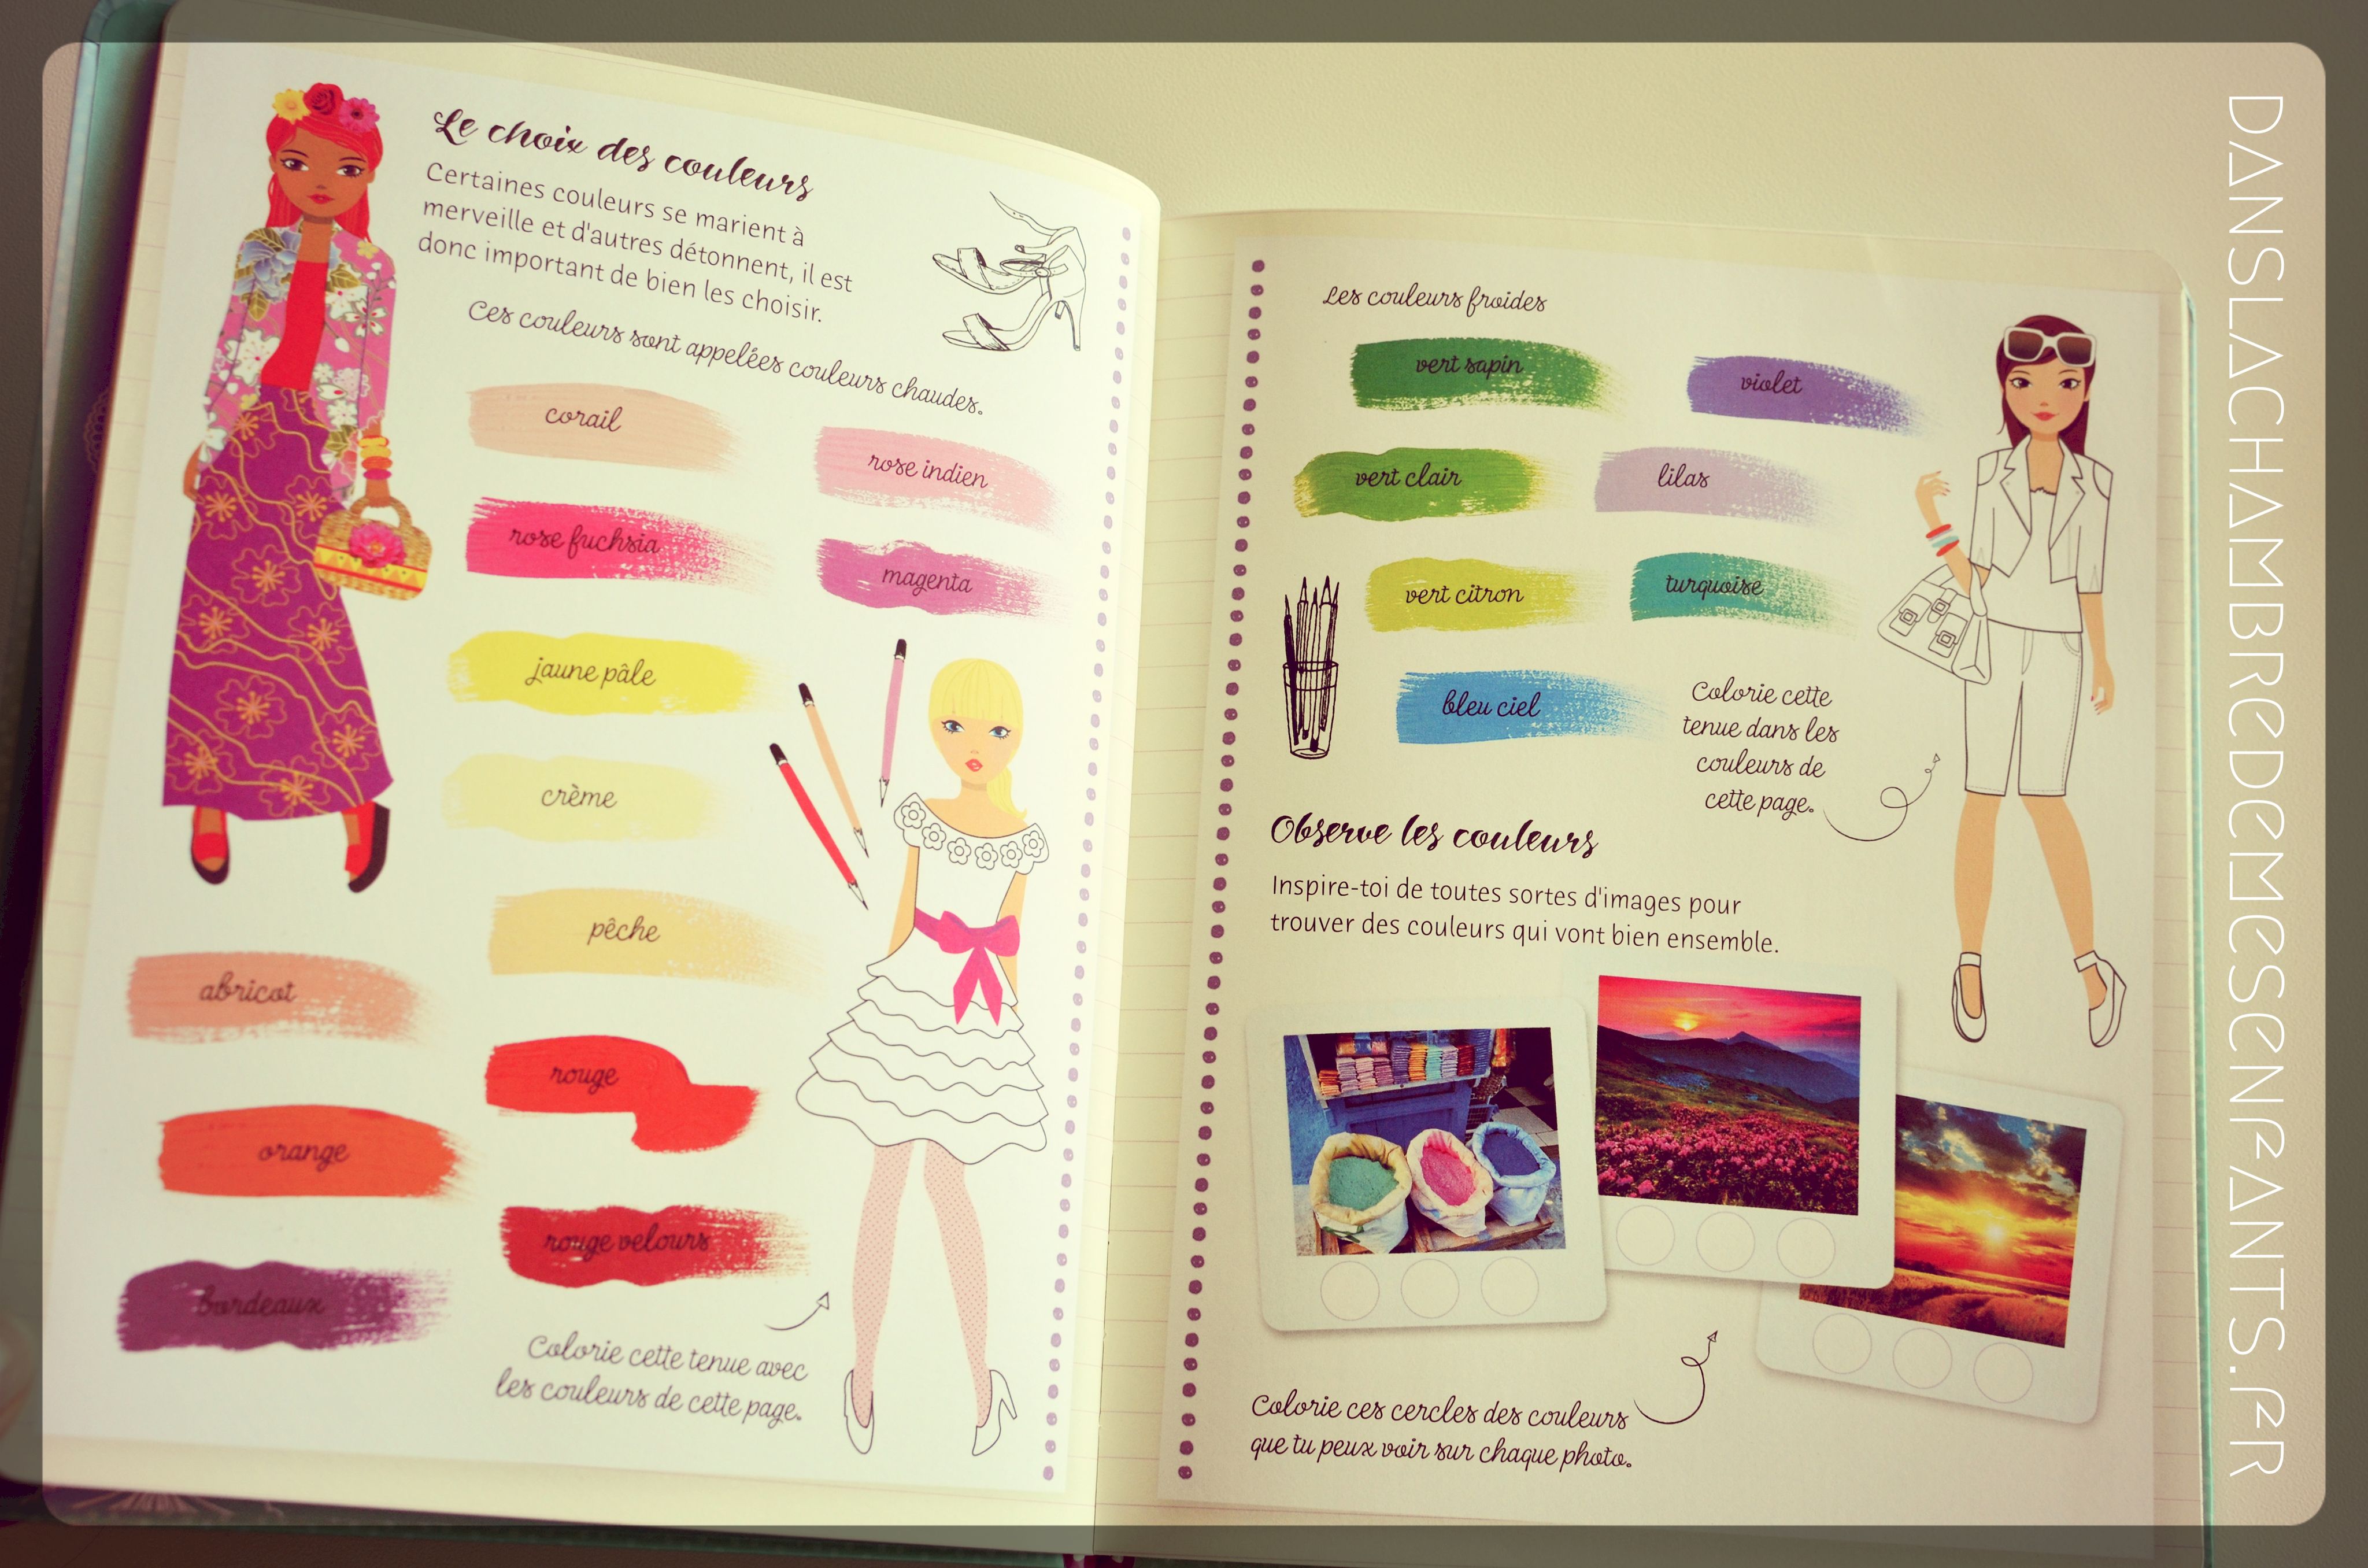 Le choix des couleurs
Certaines couleurs se marient à
merveille et d'autres détonnent, il est
donc important de bien les choisir.
Ces couleurs sont appelées couleurs chaudes.
corail
rose indien
rose fuchsia
magenta
jaune pâle
crème
pêche
abricot
rouge
orange
rouge velours
bordeaux
Colorie cette tenue avec
les couleurs de cette page.
Les couleurs froides
vert sapin
violet
vert clair
lilas
vert citron
turquoise
bleu ciel
Colorie cette
tenue dans les
couleurs de
cette page.
Observe les couleurs
Inspire-toi de toutes sortes d'images pour
trouver des couleurs qui vont bien ensemble.
Colorie ces cercles des couleurs
que tu peux voir sur chaque photo.
DANSLACHAMBREDEMESENFANTS.FR